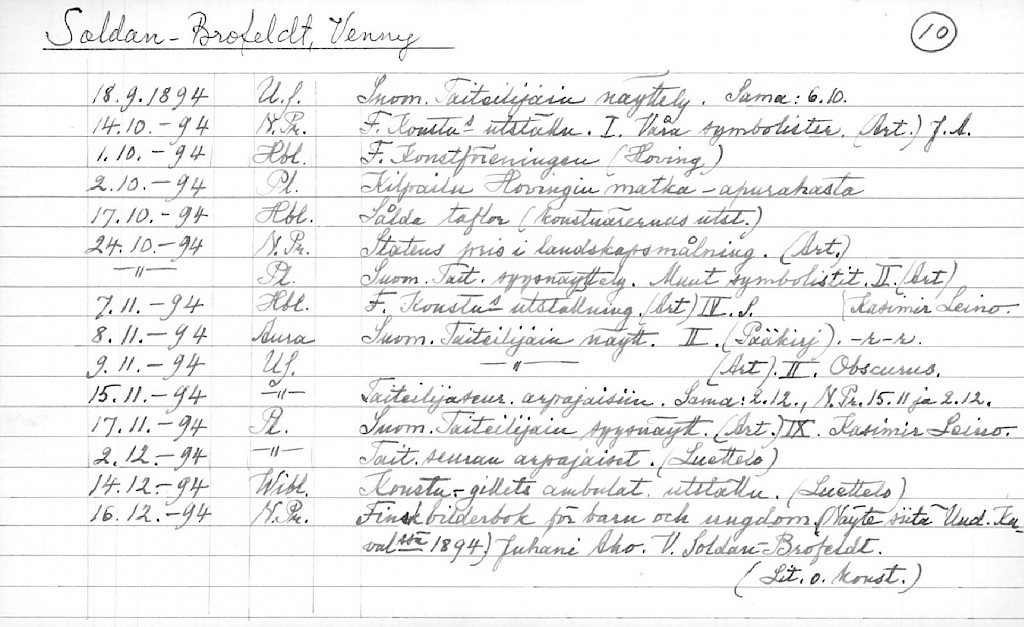 Soldan-Brofeldt, Venny 10
18.9.1894 U.S. Suom. Taiteilijain näyttely. Sama: 6.10.
14.10.-94 N.Pr. F. Konstns utställn. I. Våra symbolister. (Art.) J.A.
1.10.-94 Hbl. F. Konstföreningen (Hoving)
2.10.-94 Pl. Kilpailu Hovingin matka-apurahasta
17.10.-94 Hbl. Sålda taflor (konstnärernas utst.)
24.10.-94 N.Pr. Statens pris i landskapsmålning. (Art.)
-"- Pl. Suom. Tait. syysnäyttely. Muut symbolistit. II. (Art)
7.11.-94 Hbl. F. Konstns utställning. (Art) IV. S. (Kasimir Leino.
8.11.-94 Aura Suom. Taiteilijain näytt. II. (Pääkirj). -r-r.
9.11.-94 U.S. -"- (Art). II. Obscurus.
15.11.-94 -"- Taiteilijaseur. arpajaisiin. Sama: 2.12., N.Pr. 15.11 ja 2.12.
17.11.-94 Pl. Suom. Taiteilijain syysnäytt. (Art.) IX. Kasimir Leino.
2.12.-94 -"- Tait. seuran arpajaiset. (Luettelo)
14.12.-94 Wibl. Konstn-gillets ambulat. utställn. (Luettelo)
16.12.-94 N.Pr. Finsk bilderbok för barn och ungdom. (Näyte siitä Und. Ku-
val:ssa 1894) Juhani Aho. V. Soldan-Brofeldt.
(Lit. o. konst.)